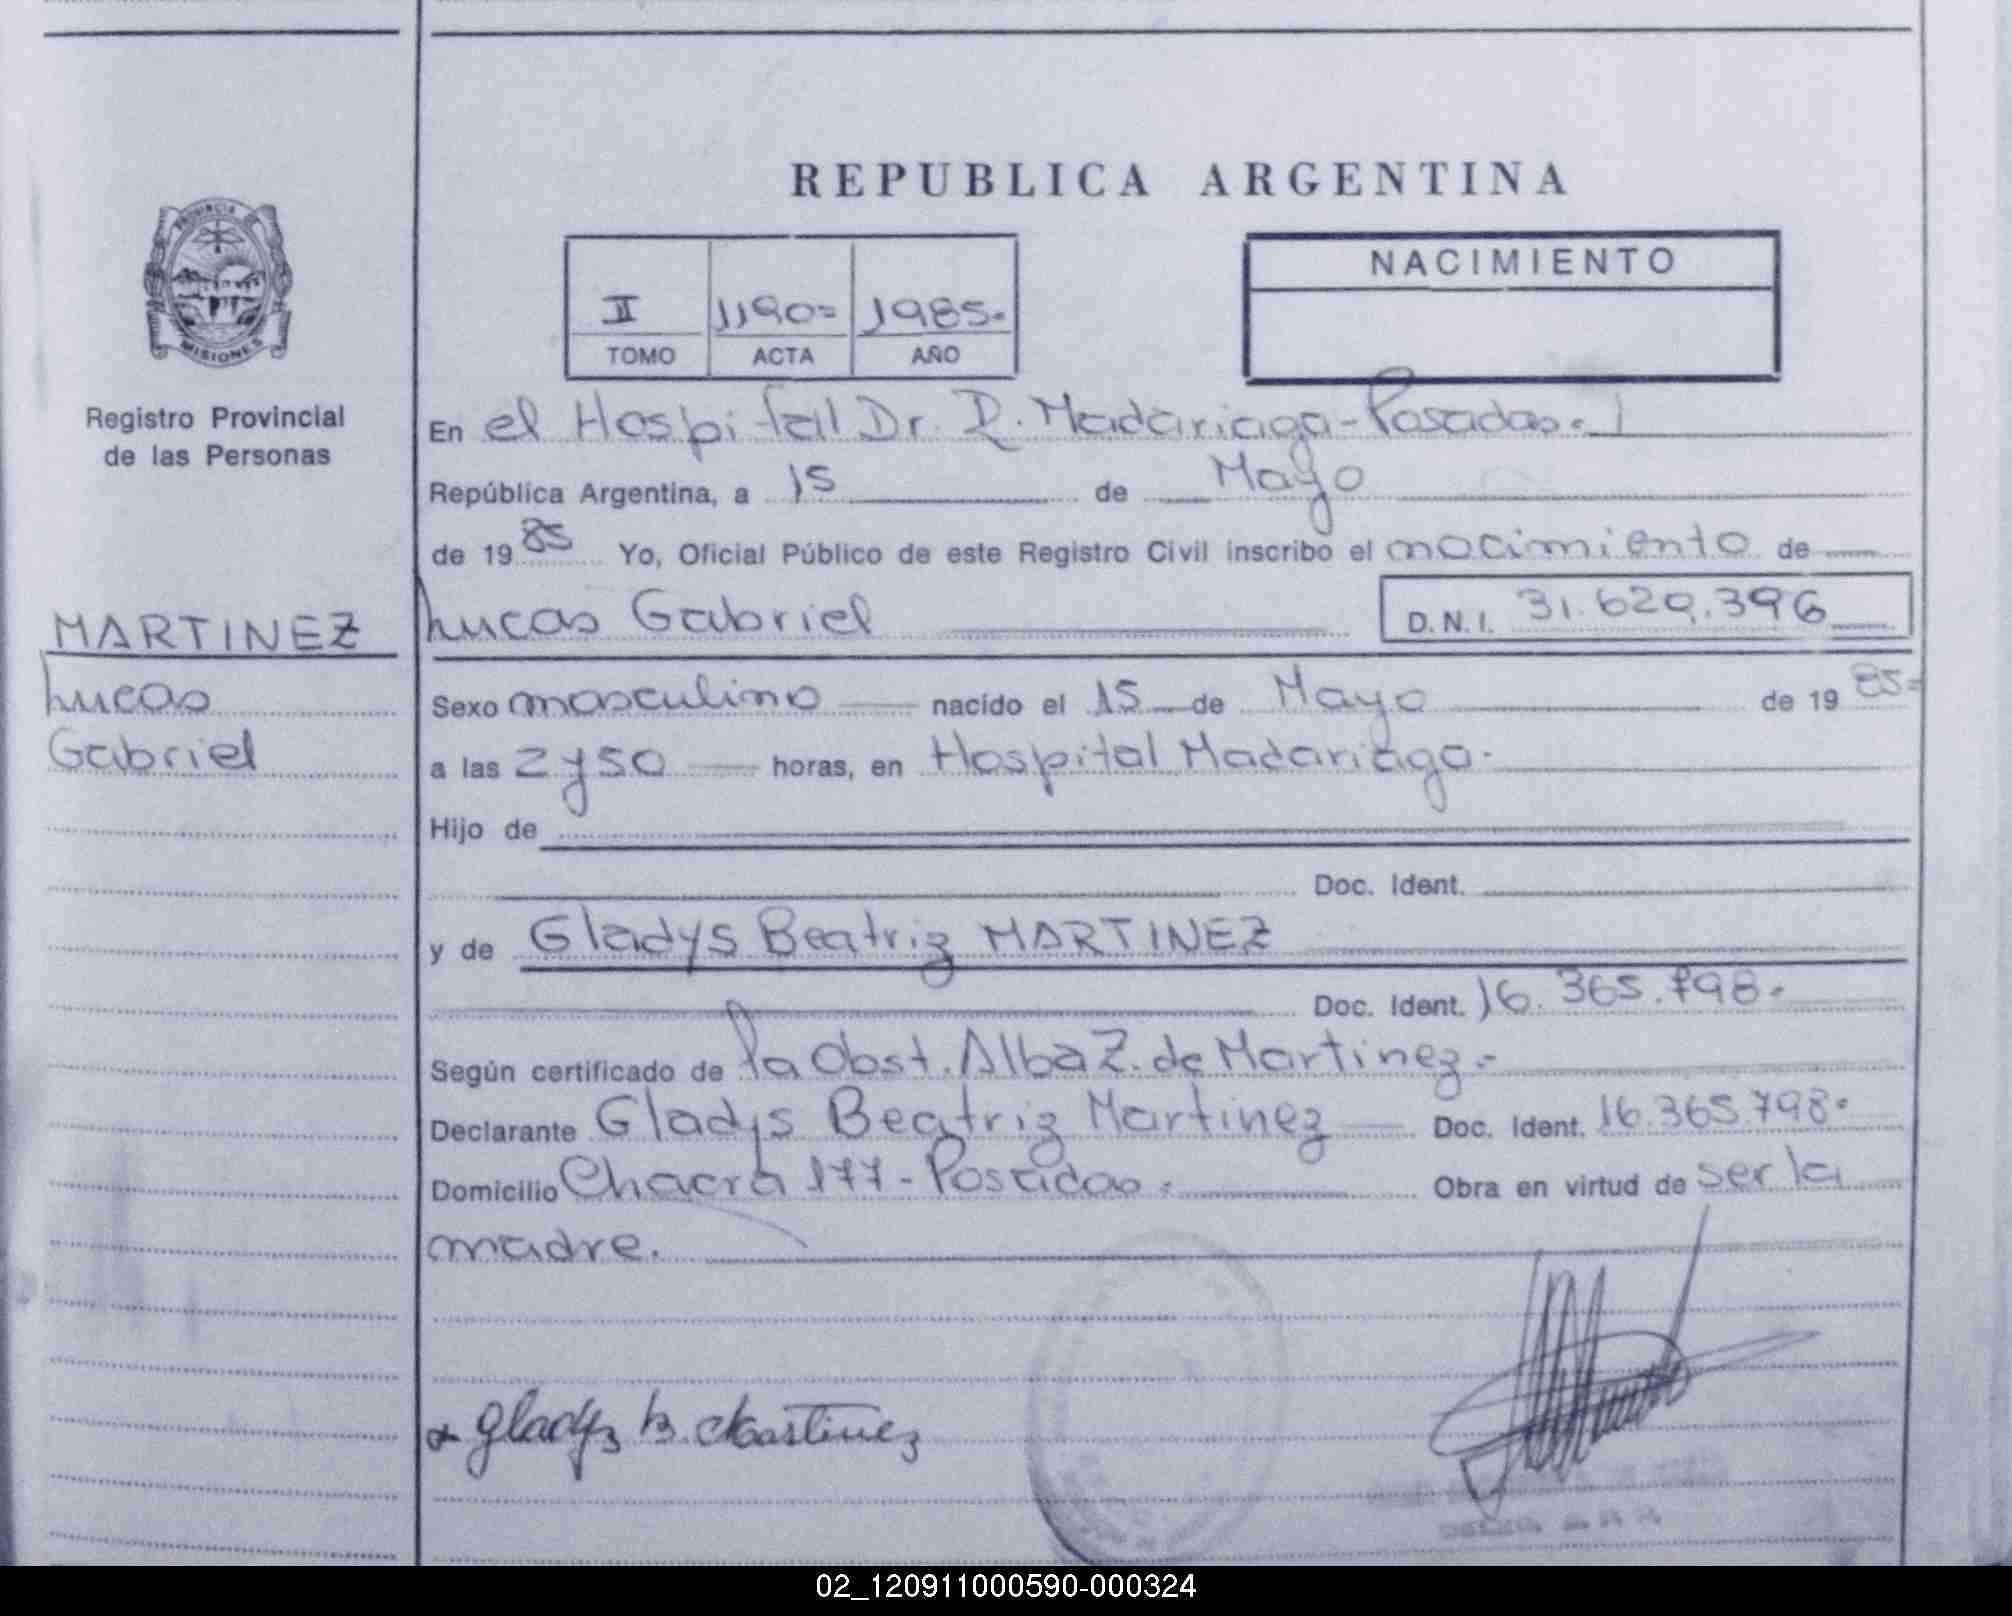 REPUBLICA ARGENTINA
PROVINCIA DE
MISIONES
Registro Provincial
de las Personas
II 1190= 1985.
TOMO ACTA AÑO
NACIMIENTO
En el Hospital Dr. R. Madariaga-Posadas.
República Argentina, a 15 de Mayo
de 1985 Yo, Oficial Público de este Registro Civil inscribo el nacimiento de
MARTINEZ
Lucas
Gabriel
Lucas Gabriel D.N.I. 31.629.396
Sexo masculino nacido el 15 de Mayo de 1985=
a las 2 y 50 horas, en Hospital Madariaga.
Hijo de
Doc. Ident.
y de Gladys Beatriz MARTINEZ
Doc. Ident. 16.365.798.
Según certificado de la Obst. Alba Z. de Martinez.-
Declarante Gladys Beatriz Martinez Doc. Ident. 16.365.798.
Domicilio Chacra 177-Posadas. Obra en virtud de ser la
madre.
Gladys B. Martinez
02_120911000590-000324